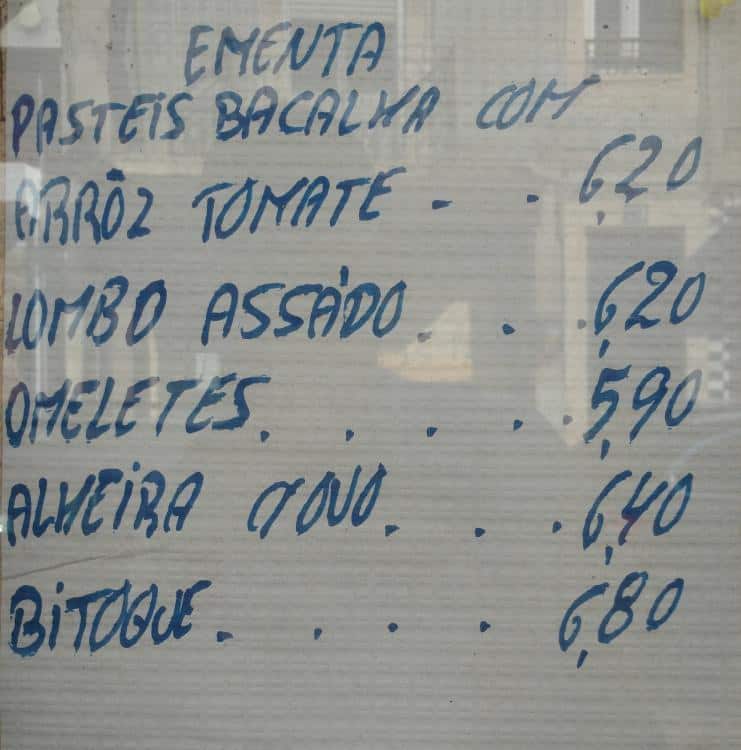 EMENTA
PASTEIS BACALHA COM
ARRÔZ TOMATE - . 6,20
LOMBO ASSÁDO . . . 6,20
OMELETES . . . . . 5,90
ALHEIRA C/OVO . . . 6,40
BITOQUE . . . . 6,80